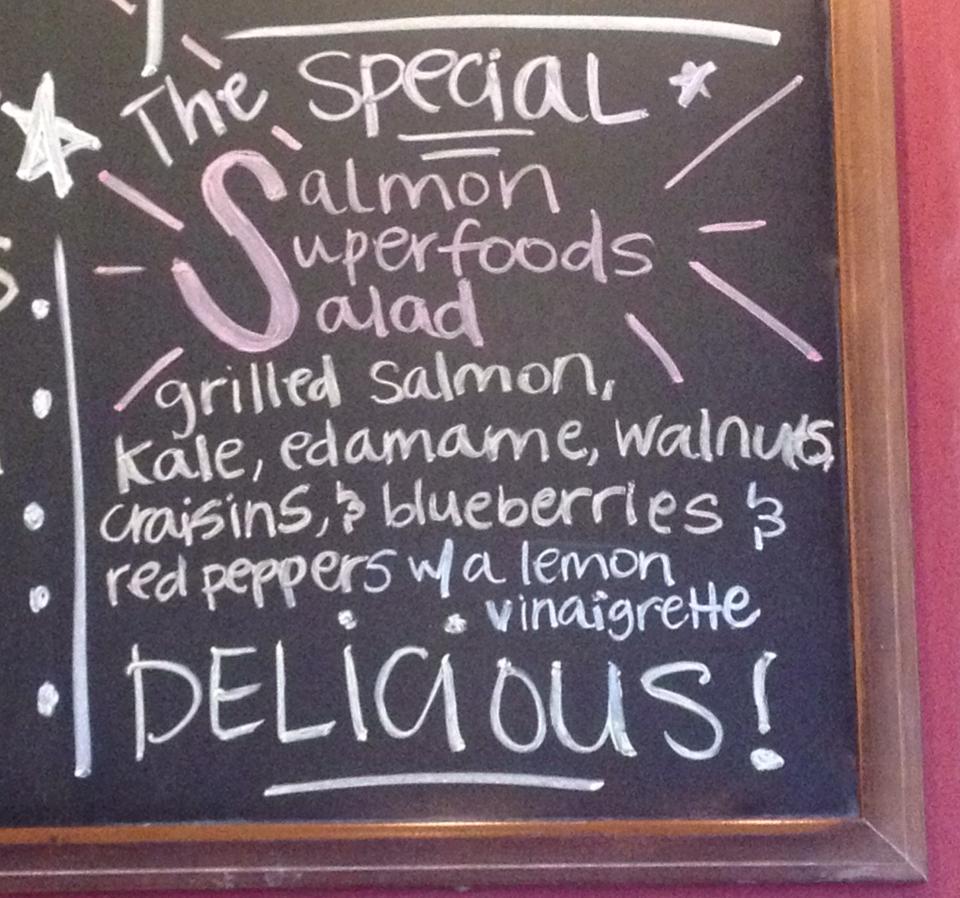 The SPeciaL
Salmon
Superfoods
Salad
grilled salmon,
kale, edamame, walnuts,
craisins, & blueberries &
red peppers w/a lemon
vinaigrette
DELiCiOUS!